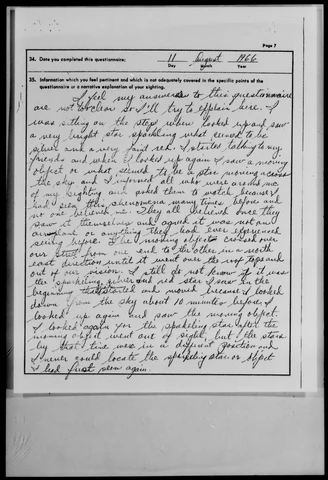 Page 7
34. Date you completed this questionnaire: 11 August 1966
Day Month Year
35. Information which you feel pertinent and which is not adequately covered in the specific points of the
questionnaire or a narrative explanation of your sighting.
I feel my answeres to this questionnaire
are not to clear so I'll try to explain here. I
was sitting on the stop when looked up and saw
a very bright star sparkling what seemed to be
silver and a very faint red. I started talking to my
friends and when I looked up again I saw a moving
object or what seemed to be a star moving across
the sky and I informed all who were around me
of my sighting and asked them to watch because I
had seen this phenomena many times before and
no one believed me. They all believed once they
saw it themselves and agreed it was not an
airoplane or anything they had ever experienced
seeing before. The moving object crossed over
our street from one end to the other in a north
east direction until it went over the roof tops and
out of our vision. I still do not know if it was
the sparkeling silver and red star I saw in the
beginning that started and moved because I looked
down from the sky about 10 minutes before I
looked up again and saw the moving object.
I looked again for the sparkeling star after the
moving object went out of sight, but the stars
by that time were in a different position and
I never could locate the sparkeling star or object
I had first seen again.